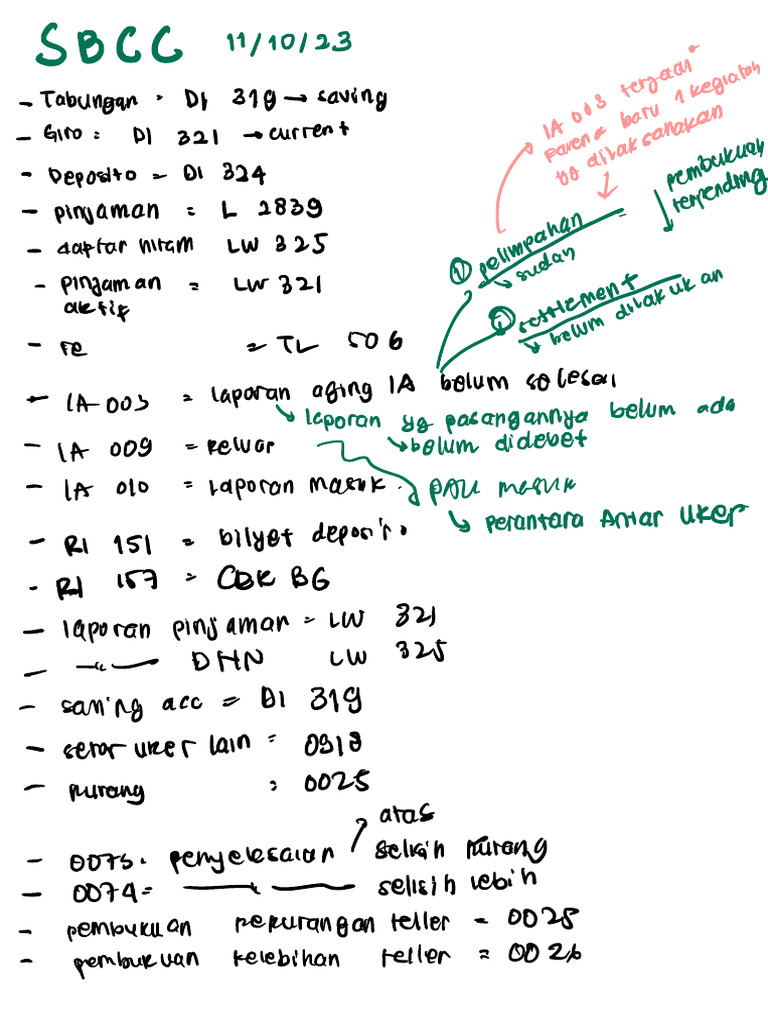 SBCC 11/10/23
- Tabungan = DI 319 → saving
- Giro = DI 321 → current
- Deposito = DI 324
- pinjaman = L 2839
- daftar hitam LW 325
- pinjaman aktif = LW 321
- re = TL 506
- IA 003 = laporan aging IA belum selesai
↳ laporan yg pasangannya belum ada
↳ belum didebet
① pelimpahan
↳ sudah
② settlement
↳ belum dilakukan
IA 003 terjadi
karena baru 1 kegiatan
yg dilaksanakan
pembukuan
terpending
- IA 009 = keluar
- IA 010 = laporan masuk.
PAU masuk
↳ perantara Antar Uker
- RI 151 = bilyet deposito
- RI 157 = CEK BG
- laporan pinjaman = LW 321
- —"— DHN LW 325
- saving acc = DI 319
- setor uker lain = 0918
- kurang = 0025
- 0073. penyelesaian atas selisih kurang
- 0074 = —"— selisih lebih
- pembukuan kekurangan teller = 0025
- pembukuan kelebihan teller = 0026